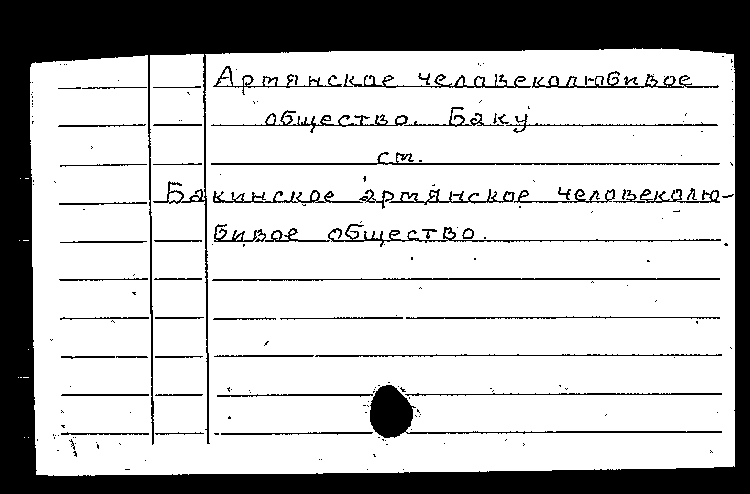 Артянское человеколюбивое
общество. Баку.
см.
Бакинское артянское человеколю-
бивое общество.